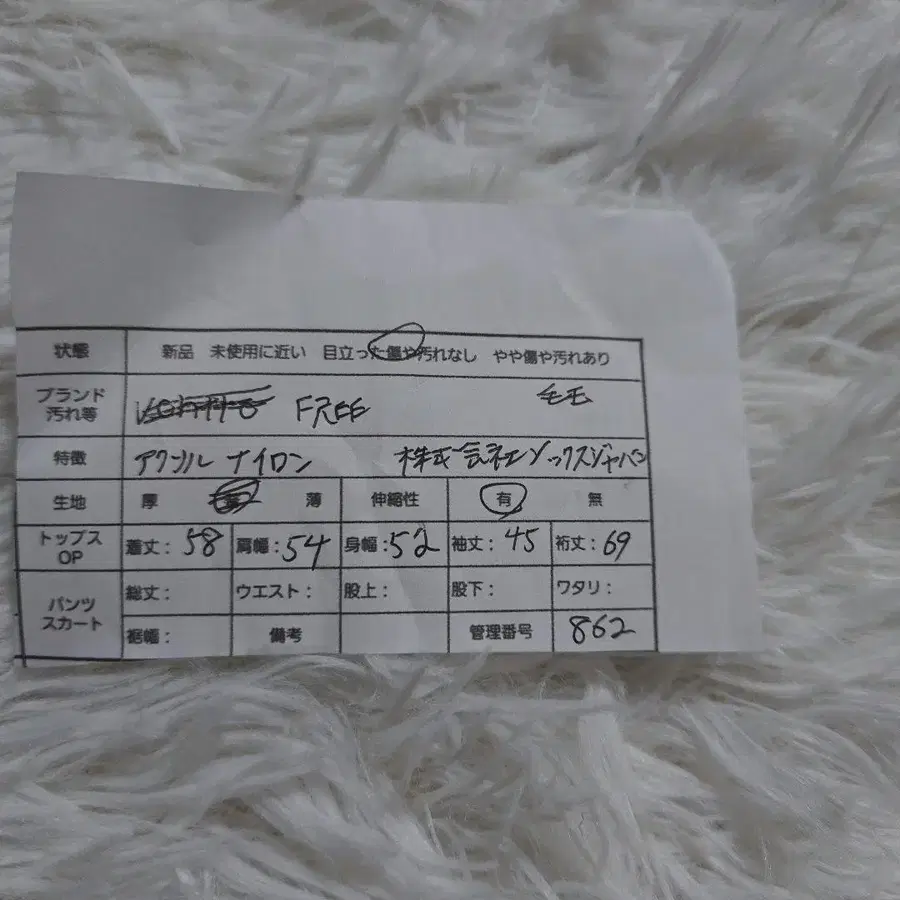 状態 新品 未使用に近い 目立った傷や汚れなし やや傷や汚れあり
ブランド 汚れ等 FREE
特徴 アクリル ナイロン 株式会社ゾックスジャパン
生地 厚 薄 伸縮性 有 無
トップス OP 着丈:58 肩幅:54 身幅:52 袖丈:45 裄丈:69
パンツ スカート 総丈: ウエスト: 股上: 股下: ワタリ:
裾幅: 備考 管理番号 862